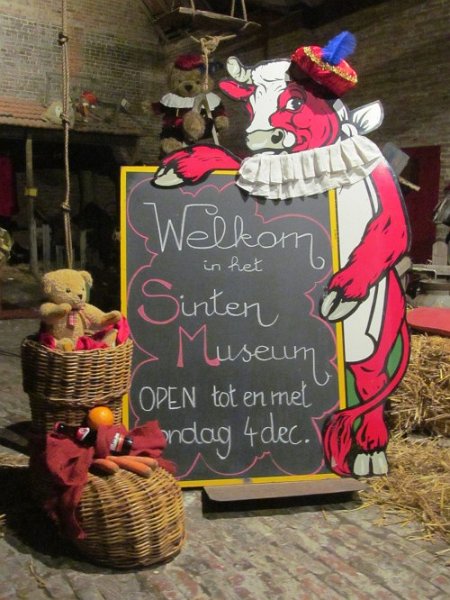 Welkom
in het
Sinten
Museum
OPEN tot en met
ondag 4 dec.